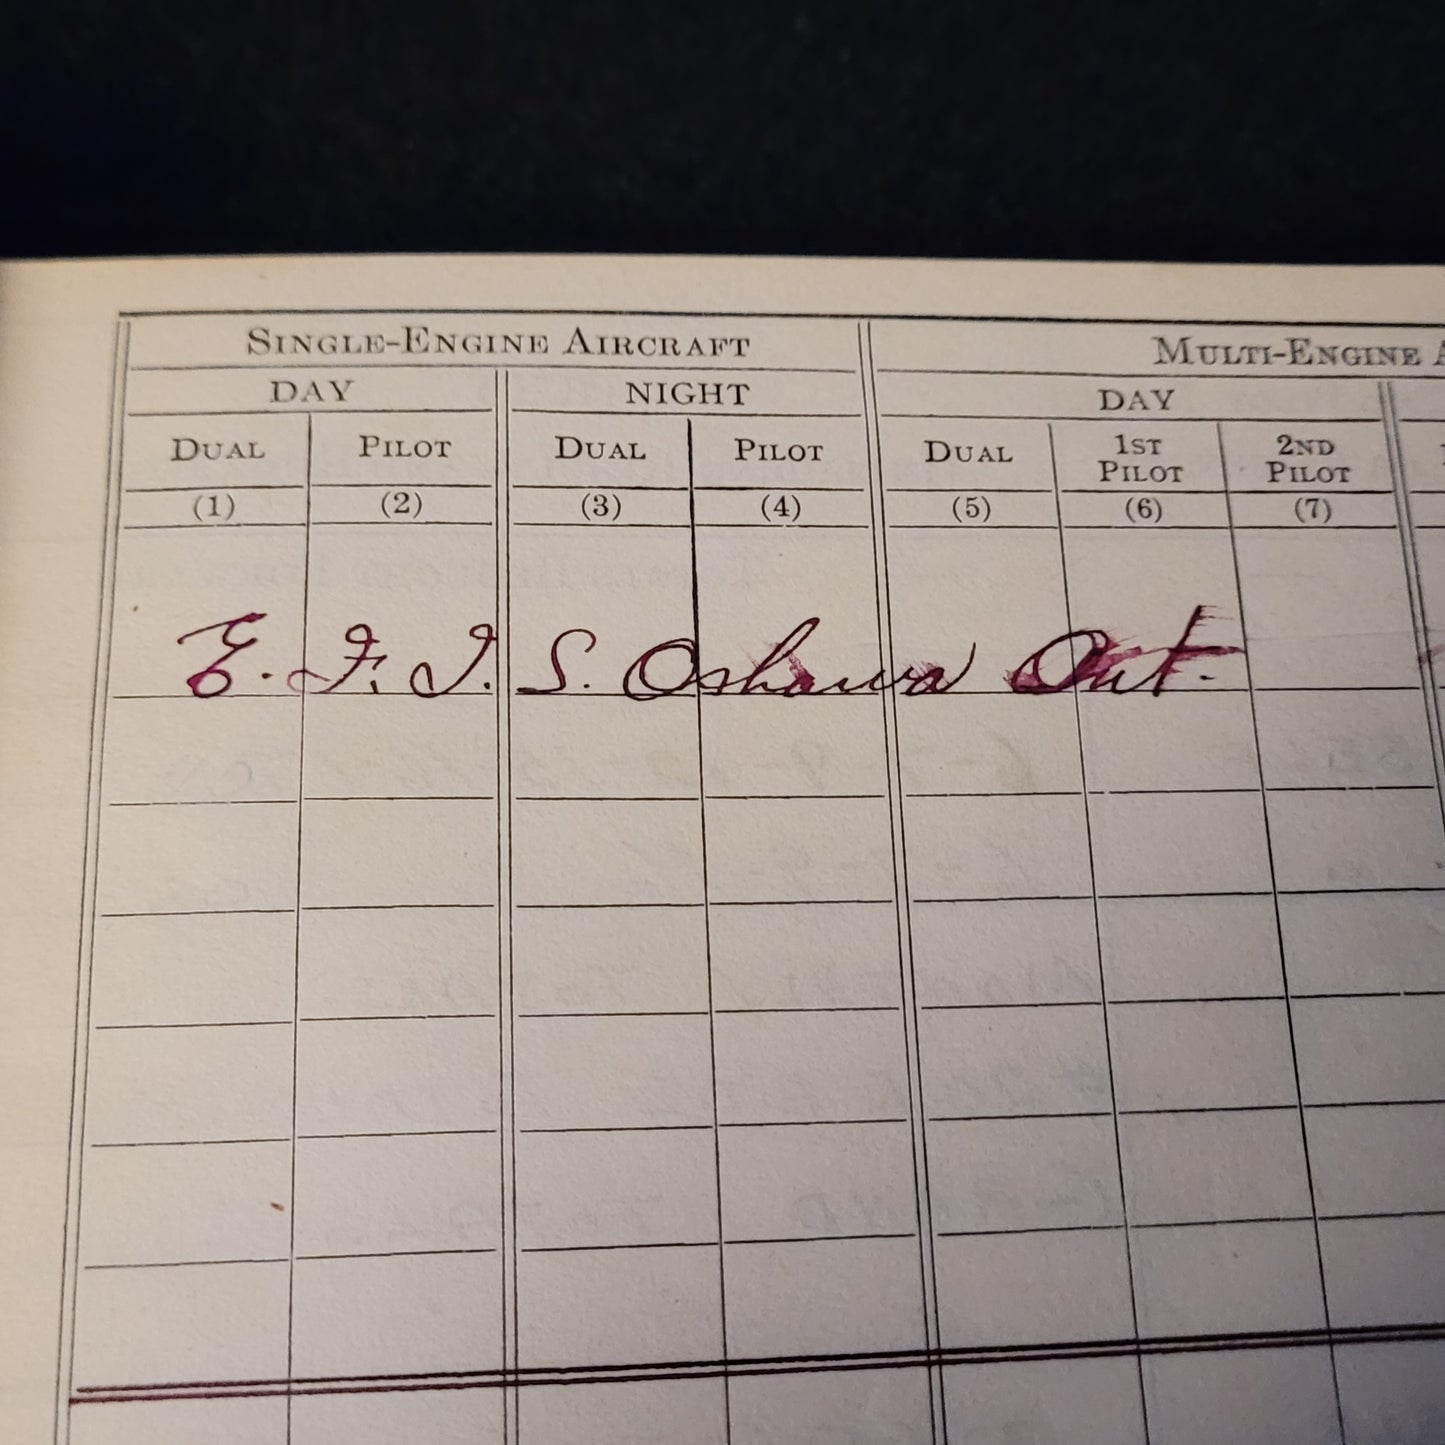 SINGLE-ENGINE AIRCRAFT MULTI-ENGINE A
DAY NIGHT DAY
DUAL PILOT DUAL PILOT DUAL 1ST PILOT 2ND PILOT
(1) (2) (3) (4) (5) (6) (7)
E. F. T. S. Oshawa Ont.